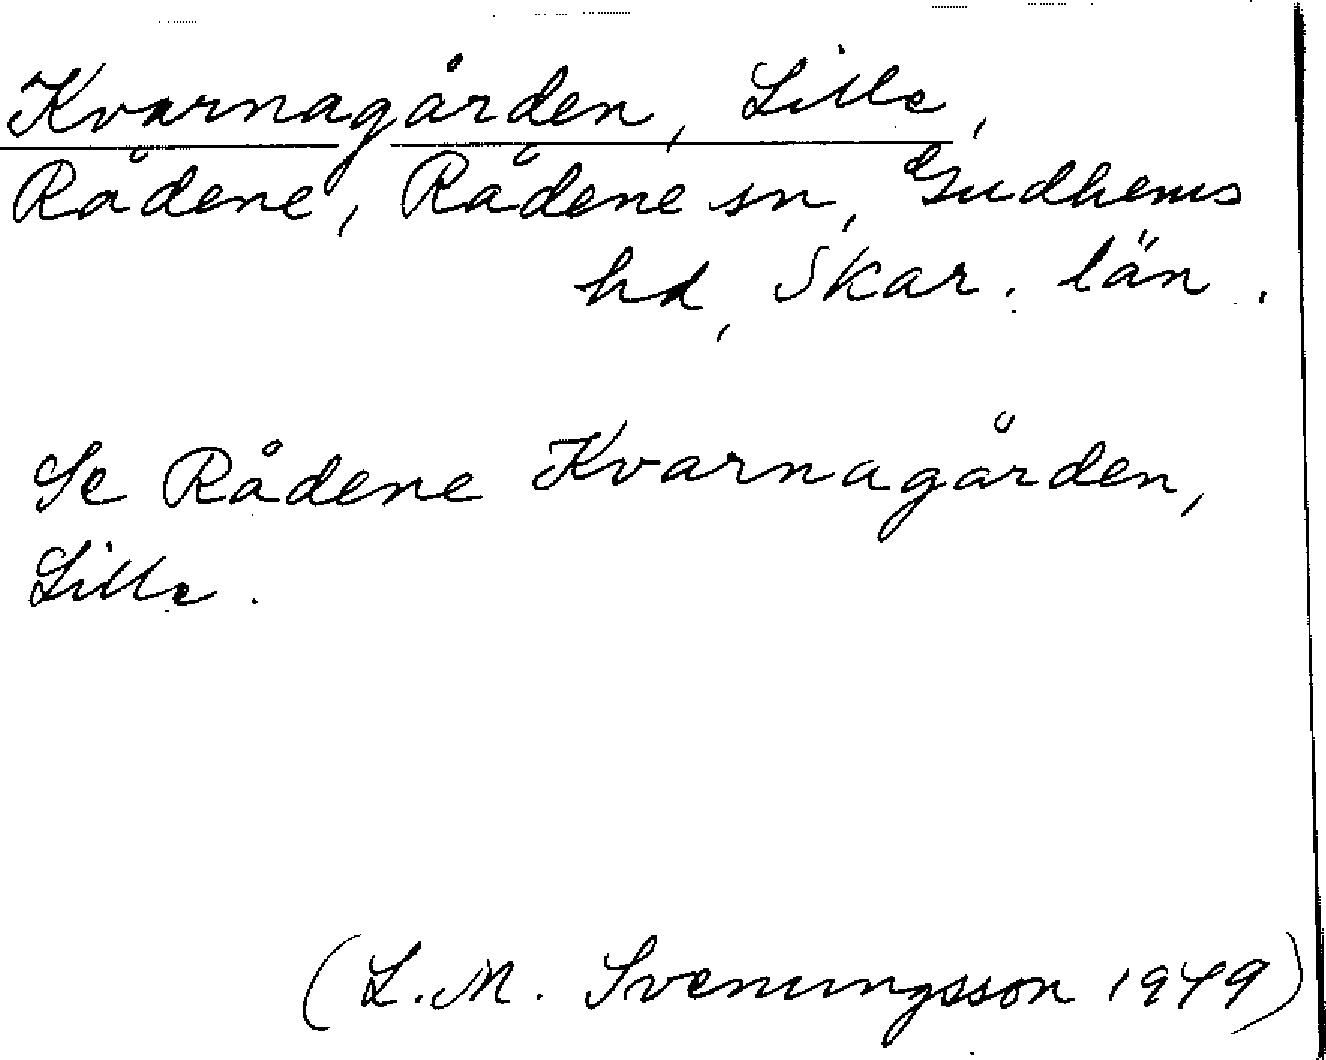 Kvarnagården, Lille,
Rådene, Rådene sn, Gudhems
hd, Skar. län.
Se Rådene Kvarnagården,
Lille.
(L.M. Svenungsson 1949)